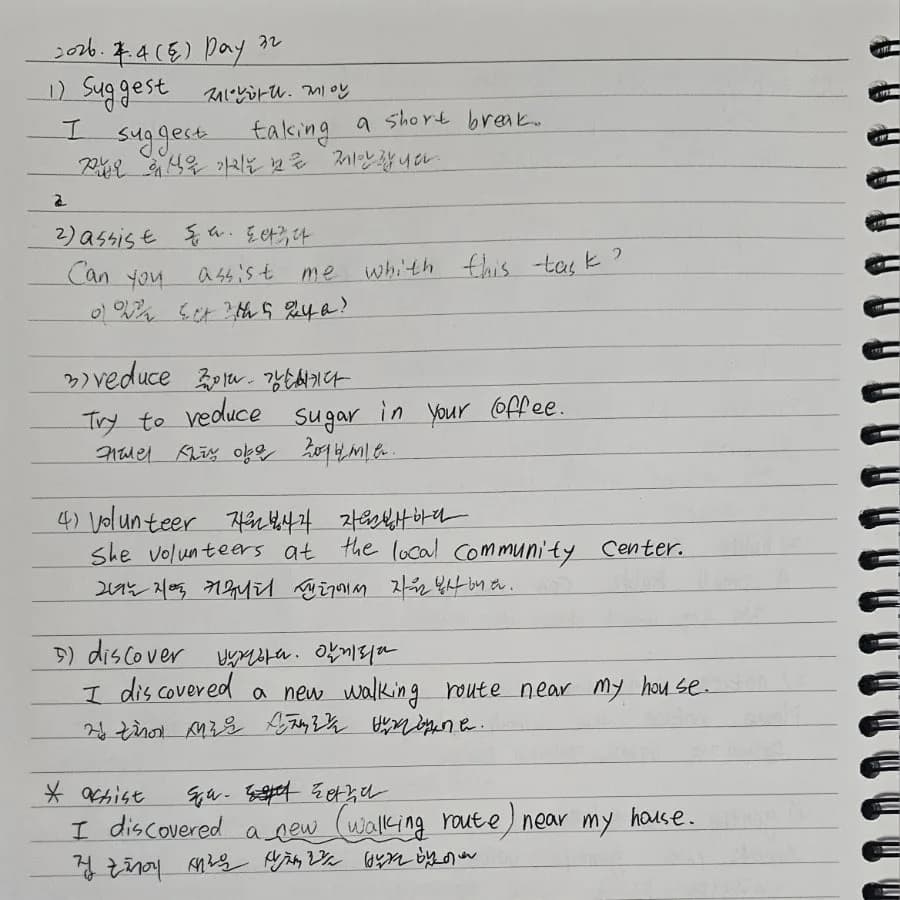 2026. 7. 4 (토) Day 32
1) Suggest 제안하다. 제안
I suggest taking a short break.
짧은 휴식을 가지는 것을 제안합니다.
2
2) assist 돕다. 도와주다
Can you assist me whith this task?
이 일을 도와 주실 수 있나요?
3) reduce 줄이다. 감소시키다
Try to reduce sugar in your coffee.
커피의 설탕 양을 줄여보세요.
4) volunteer 자원봉사자 자원봉사하다
She volunteers at the local community center.
그녀는 지역 커뮤니티 센터에서 자원봉사해요.
5) discover 발견하다. 알게되다
I discovered a new walking route near my house.
집 근처에 새로운 산책로를 발견했어요.
* assist 돕다. 도와주다
I discovered a new (walking route) near my house.
집 근처에 새로운 산책로를 발견했어요